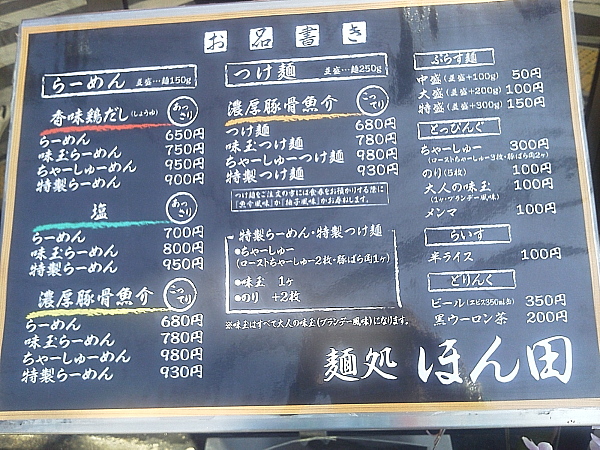 お名書き
らーめん 並盛…麺150g
香味鶏だし(しょうゆ) あっさり
らーめん 650円
味玉らーめん 750円
ちゃーしゅーめん 950円
特製らーめん 900円
塩 あっさり
らーめん 700円
味玉らーめん 800円
特製らーめん 950円
濃厚豚骨魚介 こってり
らーめん 680円
味玉らーめん 780円
ちゃーしゅーめん 980円
特製らーめん 930円
つけ麺 並盛…麺250g
濃厚豚骨魚介 こってり
つけ麺 680円
味玉つけ麺 780円
ちゃーしゅーつけ麺 980円
特製つけ麺 930円
つけ麺をご注文の方には食券をお預かりする際に
「魚介風味」か「柚子風味」かお尋ねします。
特製らーめん・特製つけ麺
●ちゃーしゅー
(ローストちゃーしゅー2枚・豚ばら肉1ヶ)
●味玉 1ヶ
●のり +2枚
※味玉はすべて大人の味玉(ブランデー風味)になります。
ぷらす麺
中盛(並盛+100g) 50円
大盛(並盛+200g) 100円
特盛(並盛+300g) 150円
とっぴんぐ
ちゃーしゅー 300円
(ローストちゃーしゅー3枚・豚ばら肉2ヶ)
のり(5枚) 100円
大人の味玉 100円
(1ヶ・ブランデー風味)
メンマ 100円
らいす
半ライス 100円
どりんく
ビール(エビス350ml缶) 350円
黒ウーロン茶 200円
麺処 ほん田